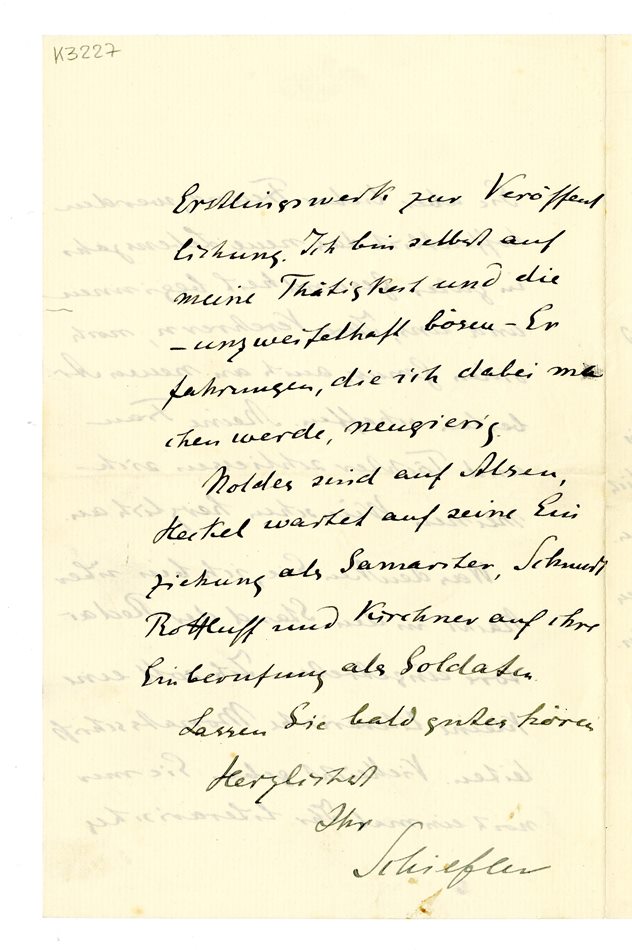 K3227
Erstlingswerk zur Veröffent
lichung. Ich bin selbst auf
meine Thätigkeit und die
– unzweifelhaft bösen – Er
fahrungen, die ich dabei ma
chen werde, neugierig.
Noldes sind auf Alsen,
Heckel wartet auf seine Ein
ziehung als Samariter, Schmidt
Rottluff und Kirchner auf ihre
Einberufung als Soldaten.
Lassen Sie bald gutes hören
Herzlichst
Ihr
Schiefler